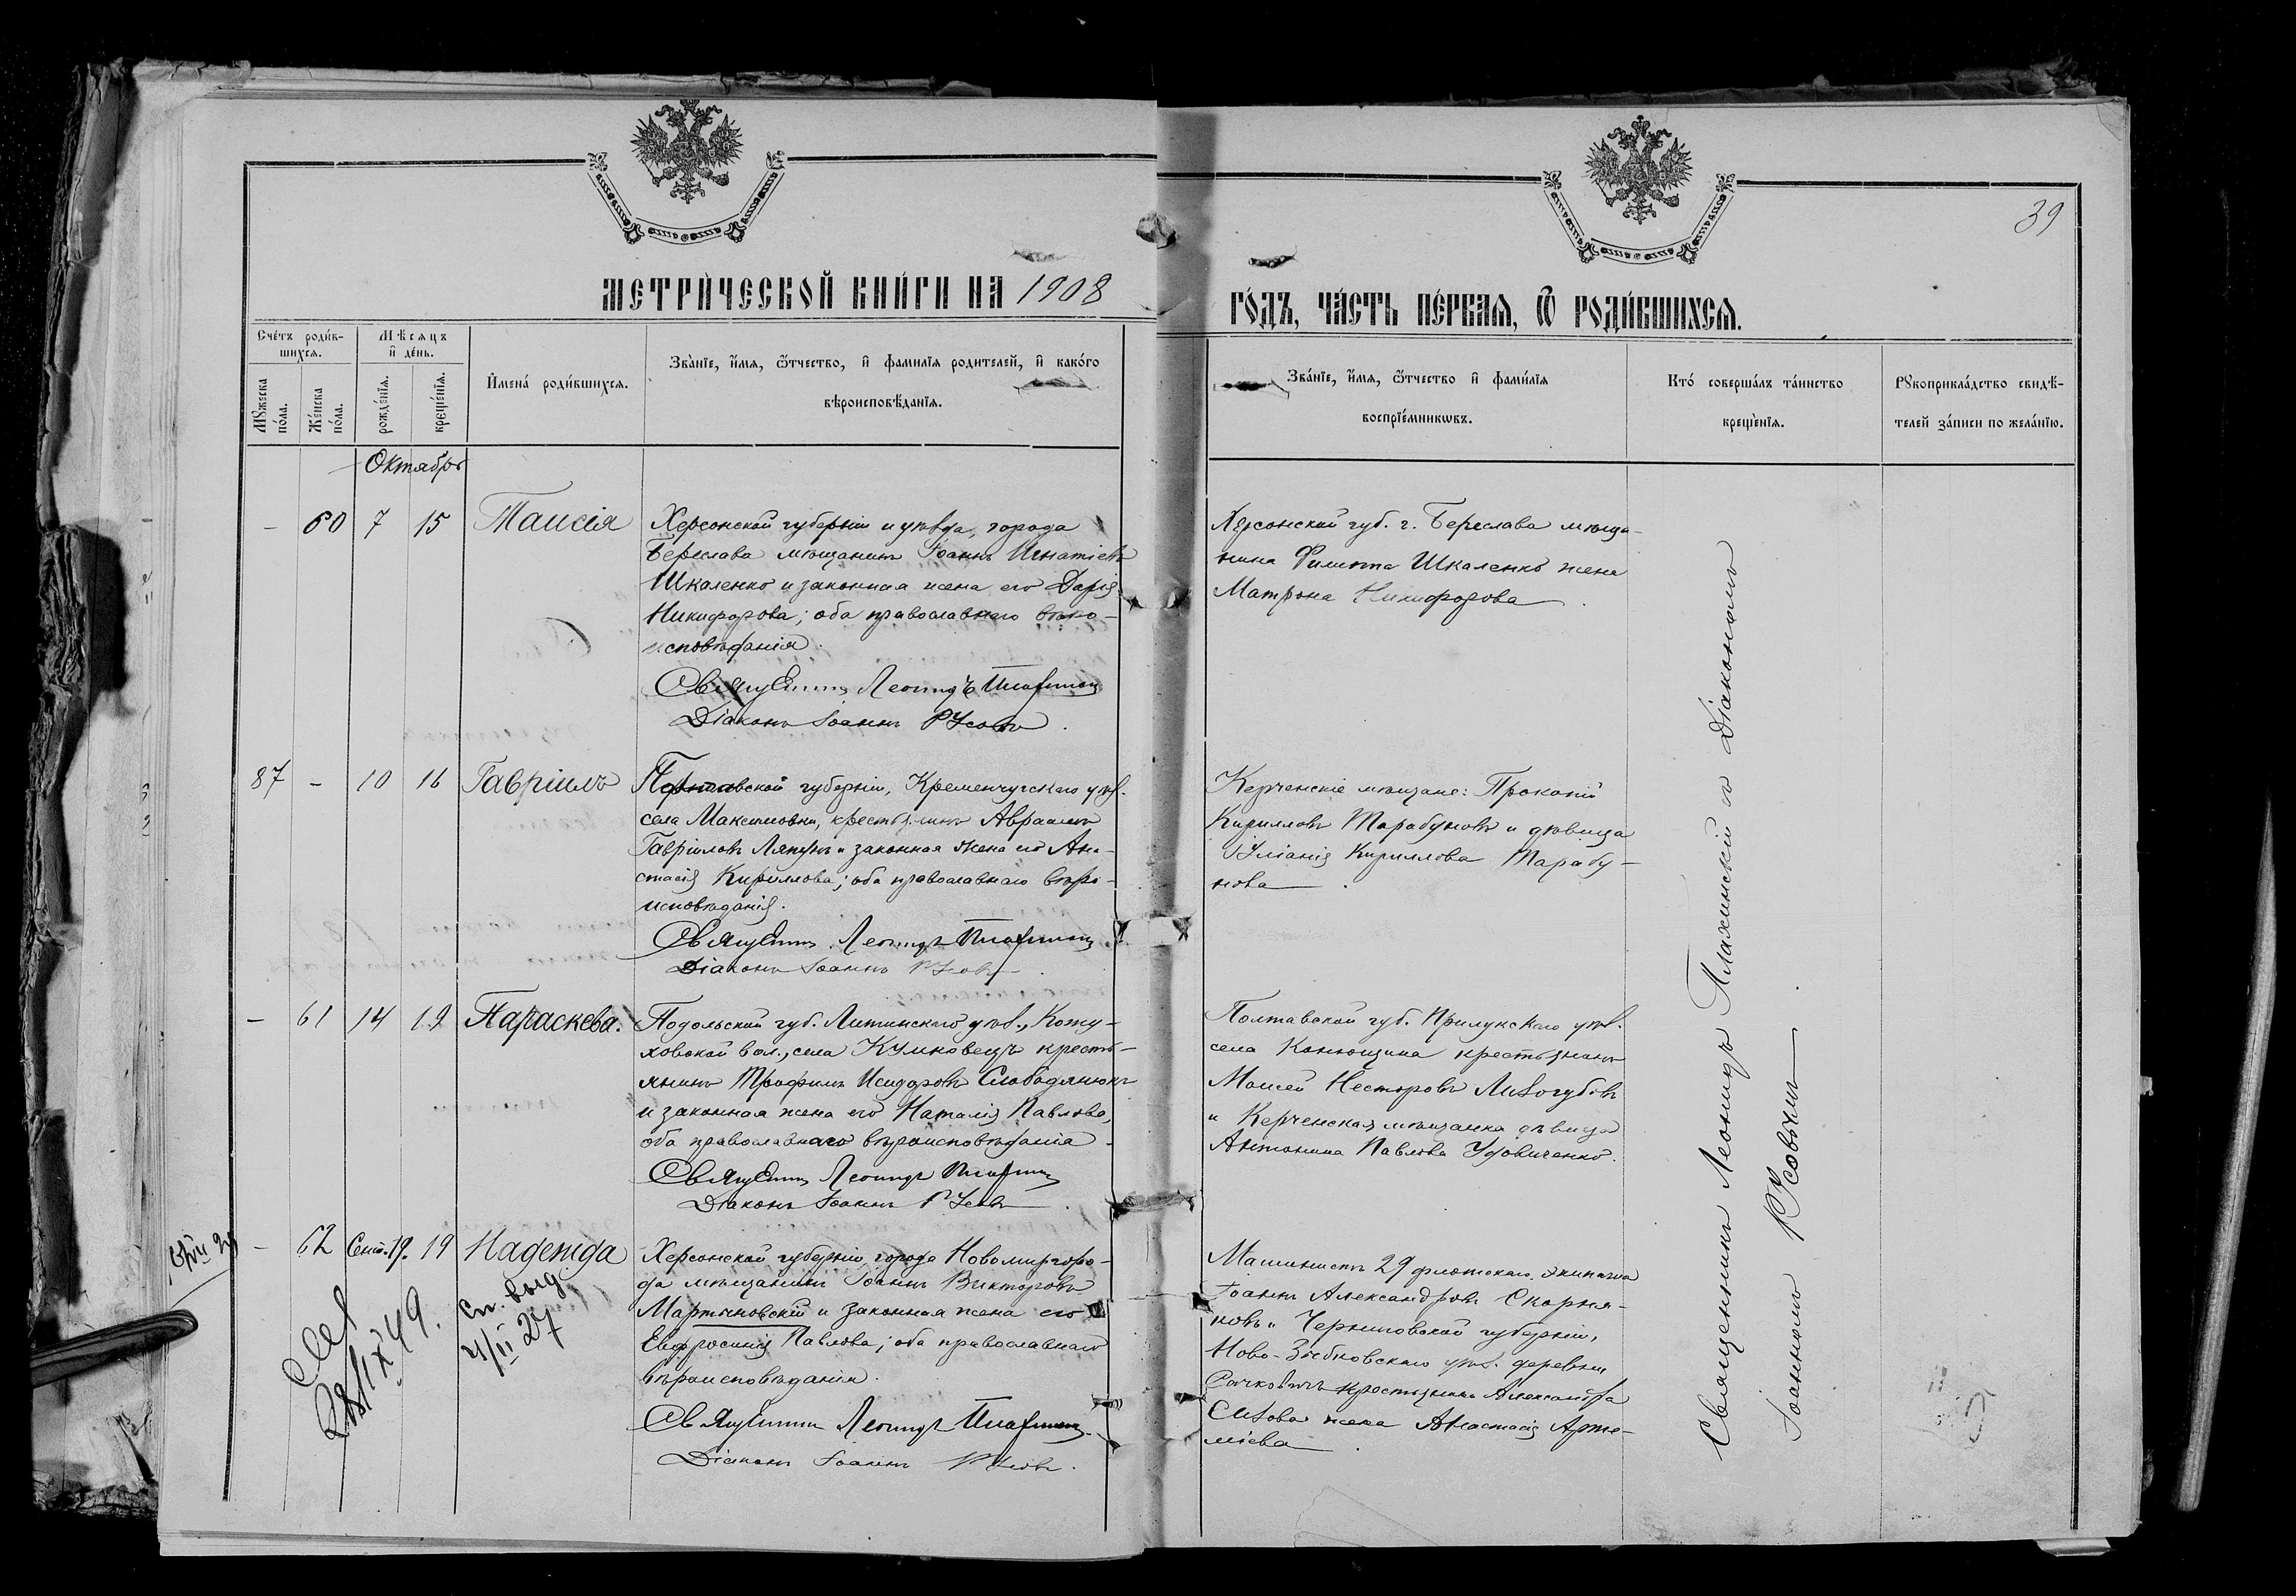 39
МЕТРИ́ЧЕСКОЙ КНИ́ГИ НА 1908
ГО́ДЪ, ЧА́СТЬ ПЕ́РВАЯ, Ѿ РОДИ́ВШИХСЯ.
Сче́тъ роди́в-
шихся.
Мѣсяцъ
и҆ де́нь.
Мꙋжеска
по́ла.
Же́нска
по́ла.
рожде́нїя.
креще́нїя.
И҆мена̀ роди́вшихся.
Зва́нїе, и҆́мя, ѻ҆́тчество, и҆ фамилїя родителей, и҆ како́го
вѣроисповѣ́данїя.
Зва́нїе, и҆́мя, ѻ҆́тчество и҆ фами́лїя
воспрїе́мникѡвъ.
Кто́ соверша́лъ та́инство
креще́нїя.
Рꙋкоприкла́дство свидѣ́-
телей за́писи по жела́нїю.
Октябрь
– 60 7 15 Таисія
Херсонской губерніи и уѣзда, города
Береслава мѣщанинъ Іоаннъ Игнатіевъ
Шкаленко и законная жена его Дарія
Никифорова; оба православнаго вѣро-
исповѣданія.
Священникъ Леонидъ Плахинскій
Діаконъ Іоаннъ Русовъ.
Херсонской губ. г. Береслава мѣща-
нина Филиппа Шкаленко жена
Матрона Никифорова
87 – 10 16 Гавріилъ
Полтавской губерніи, Кременчугскаго уѣз.
села Максимовки, крестьянинъ Авраамъ
Гавріиловъ и законная жена его Ана-
стасія Кириллова; оба православнаго вѣро-
исповѣданія.
Священникъ Леонидъ Плахинскій
Діаконъ Іоаннъ Русовъ
Керченскіе мѣщане: Прокопій
Кирилловъ Тарабуновъ и дѣвица
Іуліанія Кириллова Тарабу-
нова
– 61 14 19 Параскева.
Подольской губ. Литинскаго уѣз., Кожу-
ховской вол., села Кумановецъ кресть-
янинъ Трофимъ Исидоровъ Слободянюкъ
и законная жена его Наталія Павлова,
оба православнаго вѣроисповѣданія.
Священникъ Леонидъ Плахинскій
Діаконъ Іоаннъ Русовъ.
Полтавской губ. Прилукскаго уѣз.
села Канющина крестьянинъ
Моисей Несторовъ Лизогубовъ
и Керченская мѣщанка дѣвица
Антонина Павлова Удовиченко.
– 62 Сент. 19. 19 Надежда
Херсонской губерніи, города Новомиргоро-
да мѣщанинъ Іоаннъ Викторовъ
Мартыновскій и законная жена его
Евфросинія Павлова; оба православнаго
вѣроисповѣданія.
Священникъ Леонидъ Плахинскій
Діаконъ Іоаннъ Русовъ.
Машинистъ 29 флотскаго экипажа
Іоаннъ Александровъ Скорня-
ковъ и Черниговской губерніи,
Ново-Зыбковскаго уѣз. деревни
крестьянина Александра
Сизова жена Анастасія Арте-
міева
Сп. выд.
4/II 27
Священникъ Леонидъ Плахинскій съ Діакономъ
Іоанномъ Русовымъ